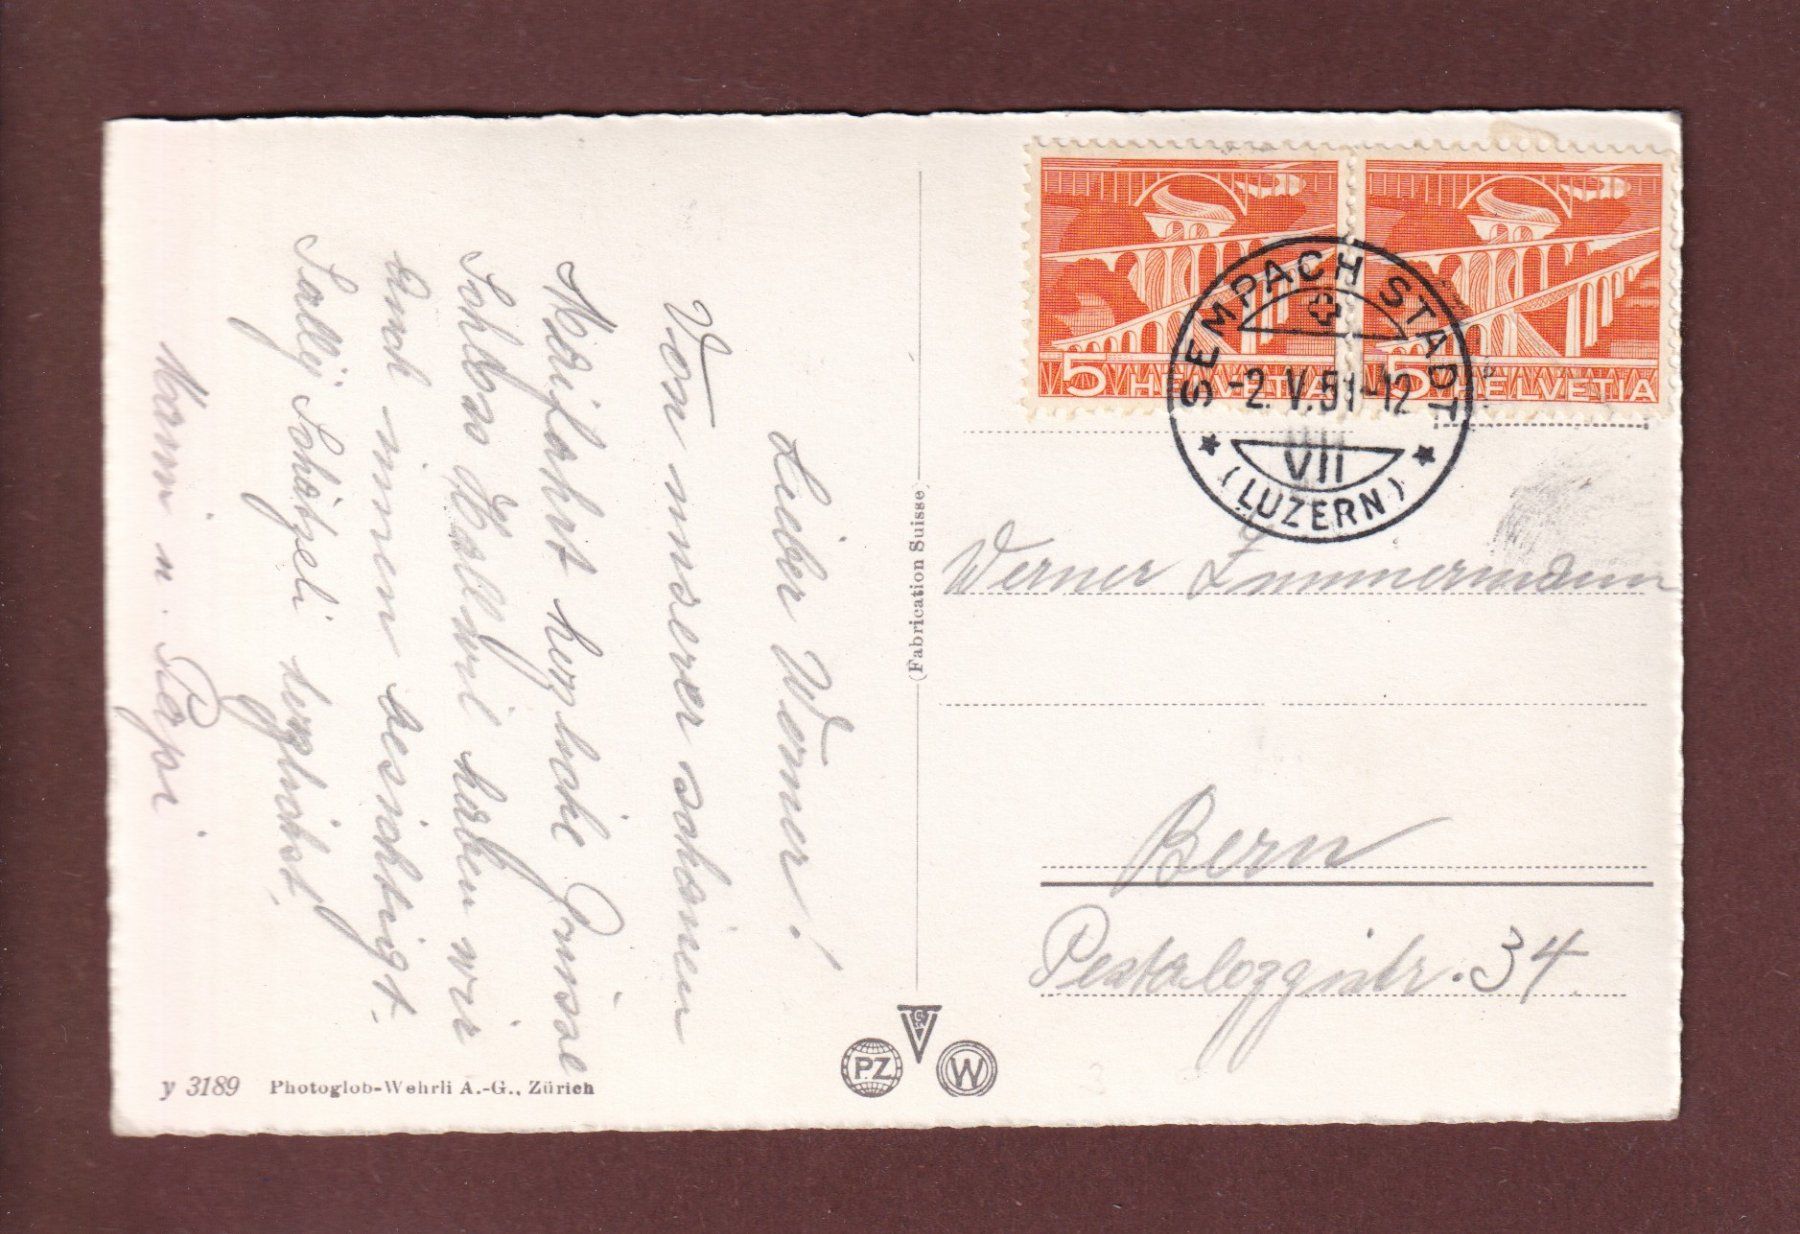 Lieber Werner!
Von unserer schönen
Maifahrt herzliche Grüsse
Schloss Hallwil haben wir
auch innen besichtigt.
Sallÿ Schätzeli herzlichst.
Mami u. Papi
y 3189 Photoglob-Wehrli A.-G., Zürich
(Fabrication Suisse)
PZ
W
5 HELVETIA
5 HELVETIA
SEMPACH STADT
-2.V.51-12
VII
(LUZERN)
Werner Zimmermann
Bern
Pestalozzistr. 34